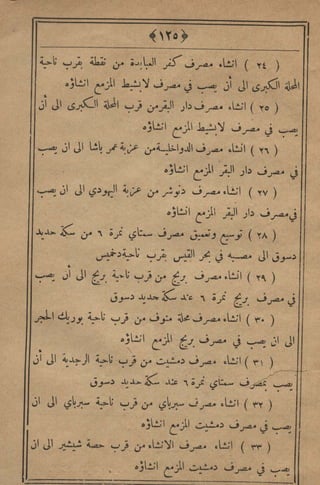 ﴿١٢٥﴾
( ٢٤ ) انشاء مصرف كفر العبايدة من نقطة بقرب ناحية
المحلة الكبرى الى أن يصب فى مصرف لابشيط المزمع انشاؤه
( ٢٥ ) انشاء مصرف دار البقر من قرب المحلة الكبرى الى أن
يصب فى مصرف لابشيط المزمع انشاؤه
( ٢٦ ) انشاء مصرف الدواخلية من عزبة عمر باشا الى ان يصب
فى مصرف دار البقر المزمع انشاؤه
( ٢٧ ) انشاء مصرف دنوشر من عزبة اليهودي الى ان يصب
فى مصرف دار البقر المزمع انشاؤه
( ٢٨ ) توسيع وتعميق مصرف سمتاي نمرة ٦ من سكة حديد
دسوق الى مصبه في بحر القيس بقرب ناحية دخميس
( ٢٩ ) انشاء مصرف بريج من قرب ناحية بريج الى أن يصب
فى مصرف بريج نمرة ٦ عند سكة حديد دسوق
( ٣٠ ) انشاء مصرف محلة منوف من قرب ناحية بوريك الحجر
الى ان يصب في مصرف بريج المزمع انشاؤه
( ٣١ ) انشاء مصرف دمشيت من قرب ناحية الرجدية الى أن
يصب بمصرف سمتاي نمرة ٦ عند سكة حديد دسوق
( ٣٢ ) انشاء مصرف سبرباي من قرب ناحية سبرباي الى ان
يصب في مصرف دمشيت المزمع انشاؤه
( ٣٣ ) انشاء مصرف الانشاء من قرب حصة شبشير الى ان
يصب في مصرف دمشيت المزمع انشاؤه